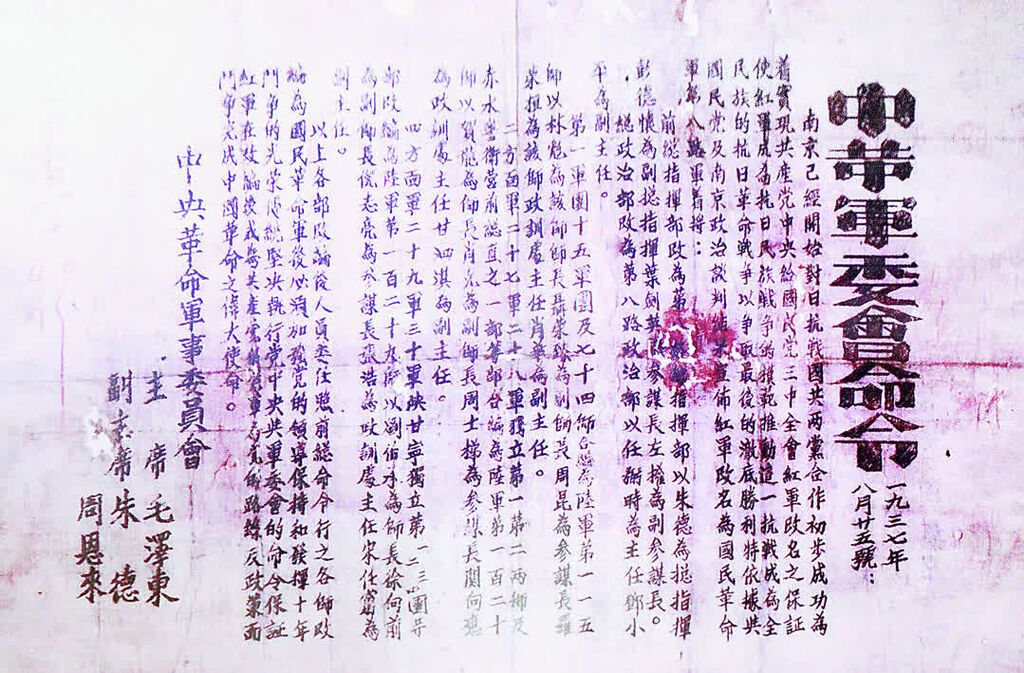 中革軍委會命令
一九三七年
八月廿五號：
南京已經開始對日抗戰國共兩黨合作初步成功為
着實現共產党中央給國民党三中全會紅軍改名之保証
使紅軍成為抗日民族戰爭的模範推動這一抗戰成為全
民族的抗日革命戰爭以爭取最後的澈底勝利特依據共
國民党及南京政治談判結果宣佈紅軍改名為國民革命
軍第八路軍着將：
前總指揮部改為第八路指揮部以朱德為總指揮
彭德懷為副總指揮葉劍英為參謀長左權為副參謀長。
總政治部改為第八路政治部以任弼時為主任鄧小
平為副主任。
第一軍團十五軍團及七十四師合編為陸軍第一一五
師以林彪為該師師長聶榮臻為副師長周昆為參謀長羅
榮桓為該師政訓處主任肖華為副主任。
二方面軍二十七軍二十八軍獨立第一第二兩師及
赤水警衛營前總直之一部等部合編為陸軍第一百二十
師以賀龍為師長肖克為副師長周士梯為參謀長關向應
為政訓處主任甘泗淇為副主任。
四方面軍二十九軍三十軍陝甘寧獨立第一二三四團等
部改編為陸軍第一百二十九師以劉伯承為師長徐向前
為副師長倪志亮為參謀長張浩為政訓處主任宋任窮為
副主任。
以上各部改編後人員委任照前總命令行之各師改
編為國民革命軍後必須加強党的領導保持和發揮十年
鬥爭的光榮傳統堅決執行党中央共軍委會的命令保証
紅軍在改編後成為共產党的党軍為党的路線及政策而
鬥爭完成中國革命之偉大使命。
中央革命軍事委員會
主席 毛澤東
副主席 朱德
周恩來